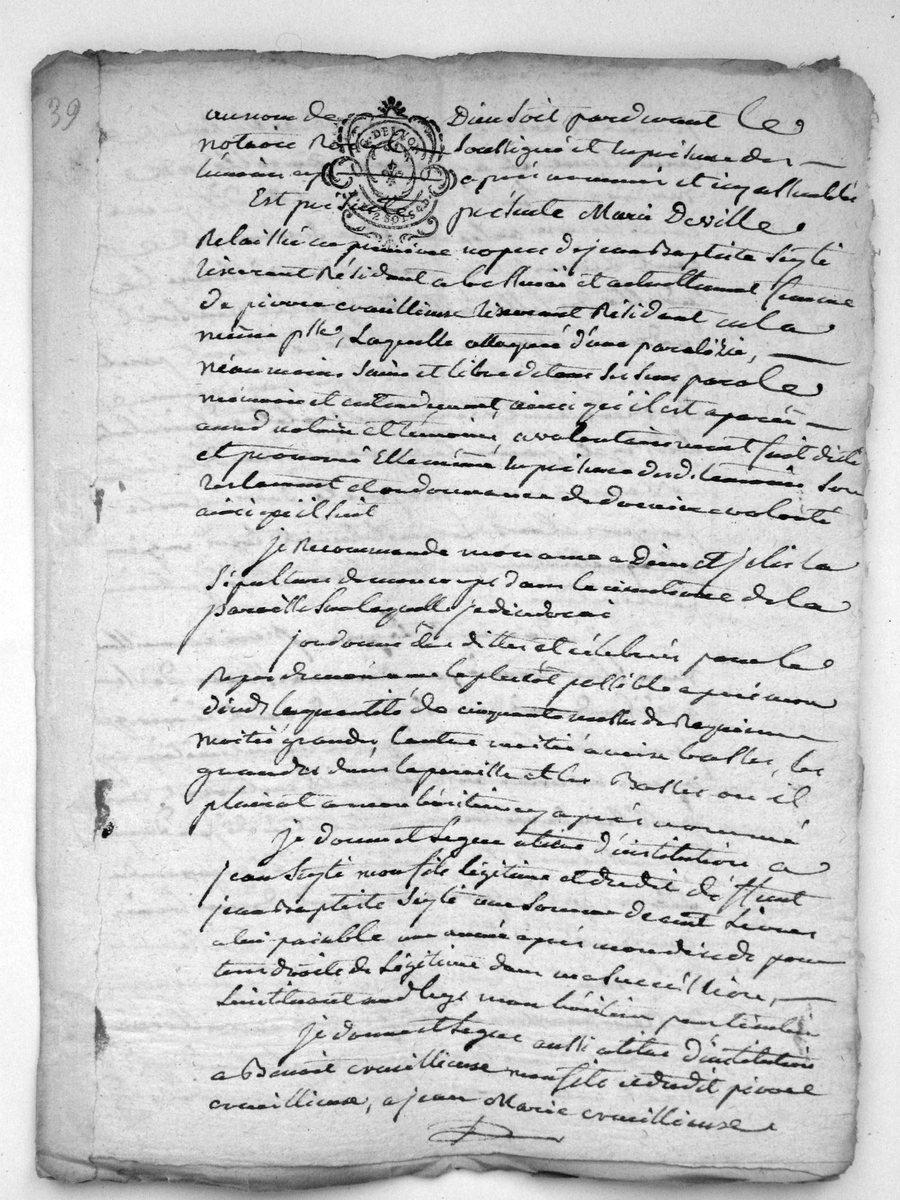 39
au nom de Dieu soit pardevant le
notaire Ro soussigné et en présence des
témoins cy après nommés et icy assemblés
Est présente Marie Deville
Relaissée en premieres nopces de jean Baptiste Siyté
vivant Résidant a et actuellement femme
de pierre Résidant en la
même plle, Laquelle attaquée d'une paralizie,
néaumoins saine et libre de tous ses sens parole
mémoire et entendement, ainsi qu'il est apparu
aud notaire et témoins, a volontairement fait dicté
et prononcé Elle même en présence desd. temoins son
testament et ordonnance de derniere volonté
ainsi qu'il suit
je Recommande mon ame a Dieu et j'elis la
sépulture de mon corps dans le cimetiere de la
paroisse sur laquelle je décederai
j'ordonne être dittes et célébrées pour le
Repos de mon ame le plutôt possible après mon
décès la quantité de cinquante messes de Requiem
moitié grandes, l'autre moitié a voix basses, les
grandes dans la paroisse et les Basses ou il
plairat a mon héritier cy après nommé
je donne et legue a titre d'institution a
jean Siyté mon fils légitime et dudit défunt
jean Baptiste Siyté une somme de cent livres
a lui païable une année après mon décès pour
tous droits de légitime dans ma succession,
L'instituant aud legs mon héritier particulier
je donne et legue aussi a titre d'institution
a Benoit mon fils et dudit pierre
, a jean Marie